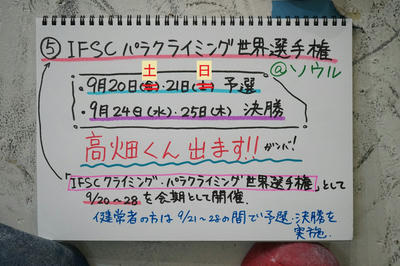 ⑤ IFSC パラクライミング世界選手権
@ソウル
土 日
・9月20日(金)・21日(土) 予選
・9月24日(水)・25日(木) 決勝
高畑くん出ます!! ガンバ!
「IFSCクライミング・パラクライミング世界選手権」として
9/20~28を会期として開催.
健常者の方は 9/21~28の間で予選.決勝を
実施.